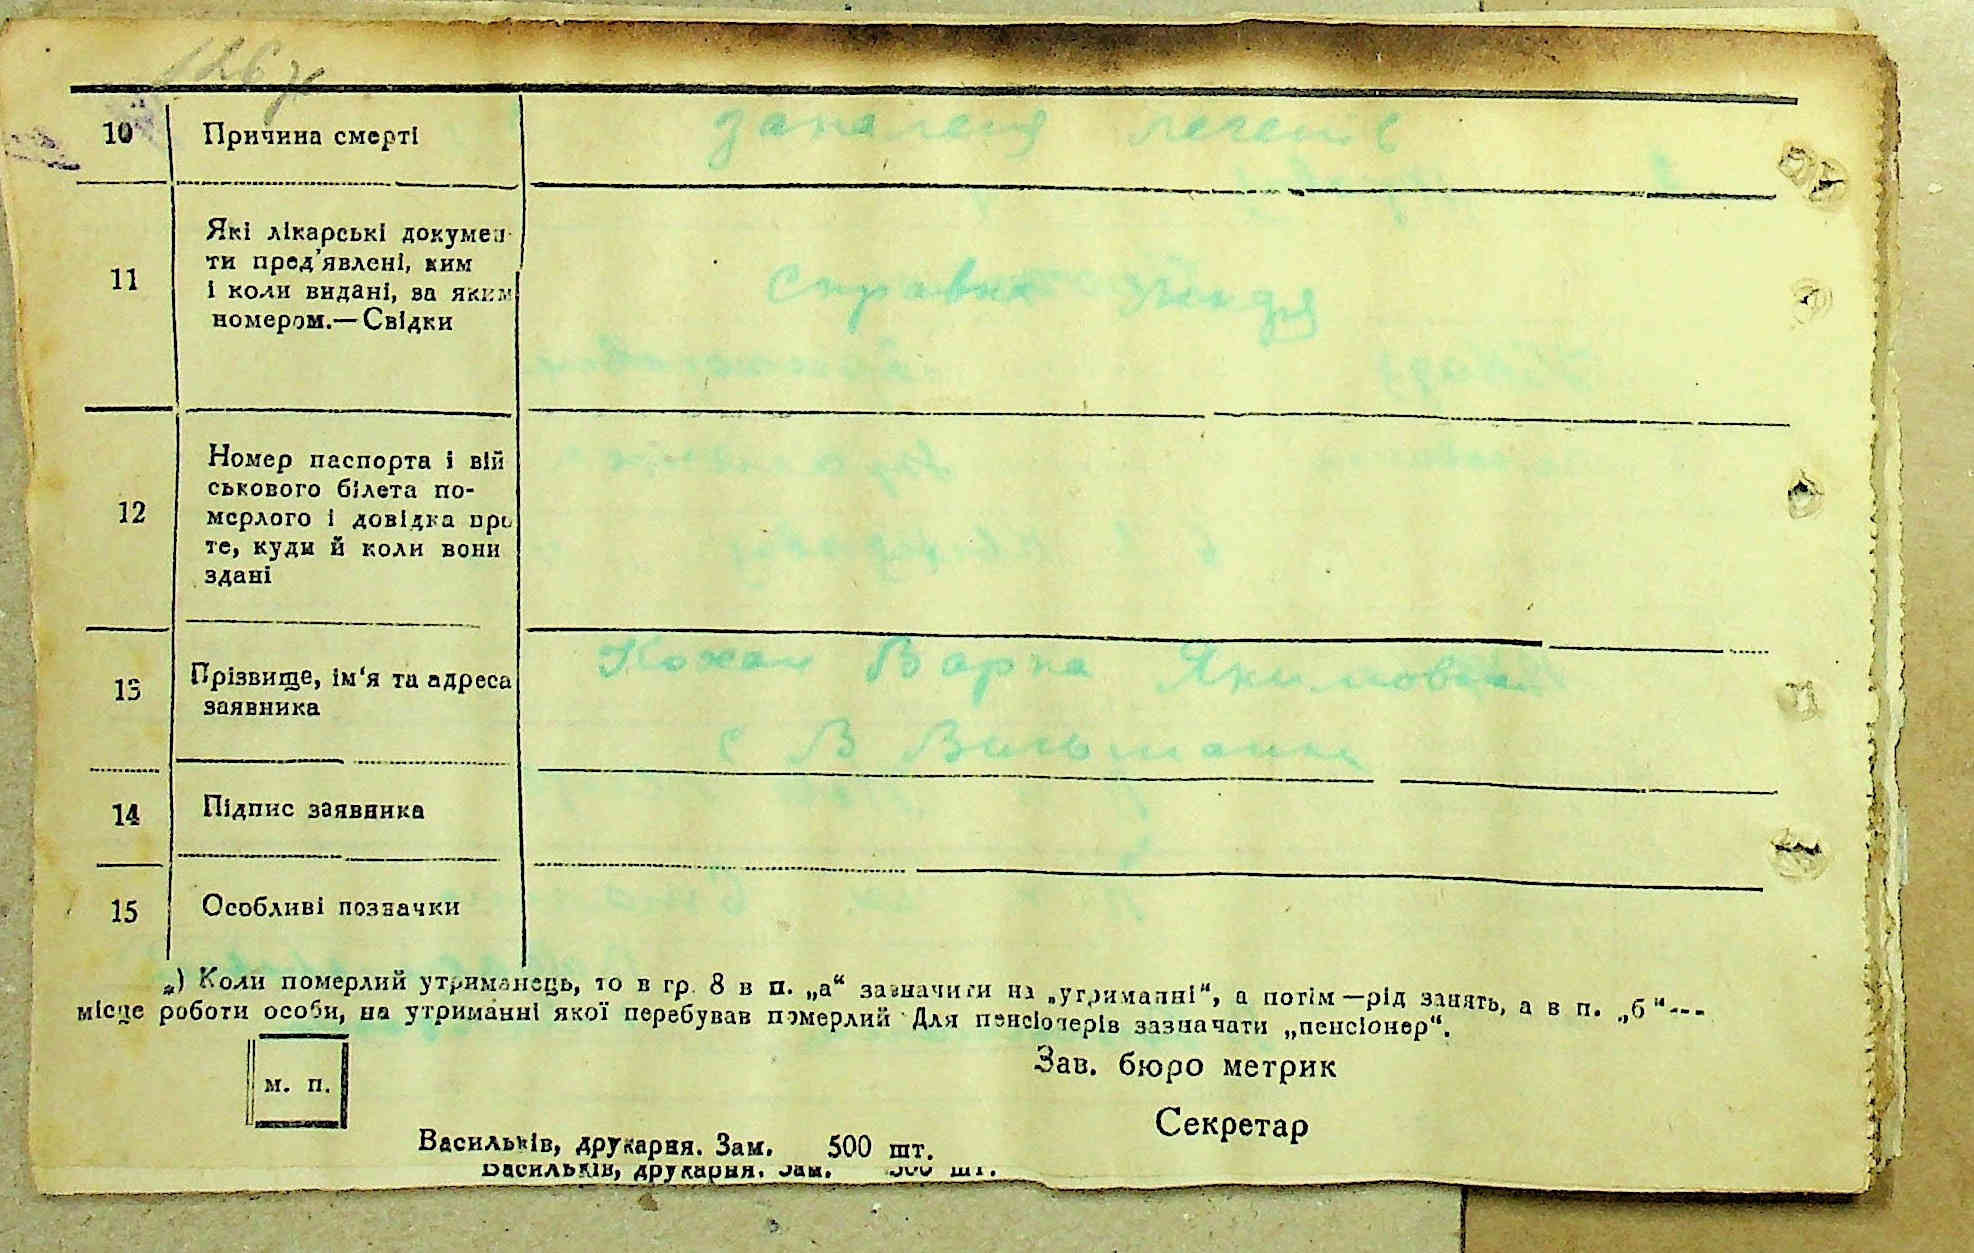 126
10 Причина смерті запалення легенів
11 Які лікарські докумен
ти пред'явлені, ким
і коли видані, за яким
номером.— Свідки
справка
12 Номер паспорта і вій
ськового білета по-
мерлого і довідка про
те, куди й коли вони
здані
13 Прізвище, ім'я та адреса
заявника
Кохан Варка Якимовна
с В Вильшанка
14 Підпис заявника
15 Особливі позначки
*) Коли померлий утриманець, то в гр. 8 в п. „а“ зазначити на „утриманні“, а потім—рід занять, а в п. „б“---
місце роботи особи, на утриманні якої перебував померлий Для пенсіонерів зазначати „пенсіонер“.
Зав. бюро метрик
м. п.
Секретар
Васильків, друкарня. Зам. 500 шт.
Васильків, друкарня. Зам. 500 шт.